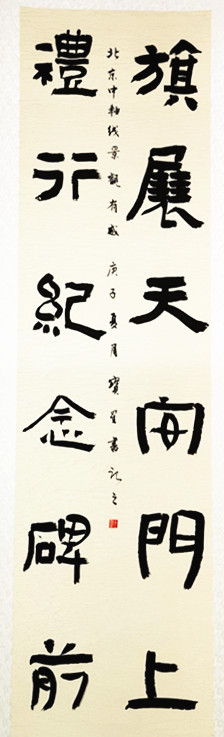 旗展天安門上
禮行紀念碑前
北京中軸线景觀有感 庚子夏月 寶星書记之